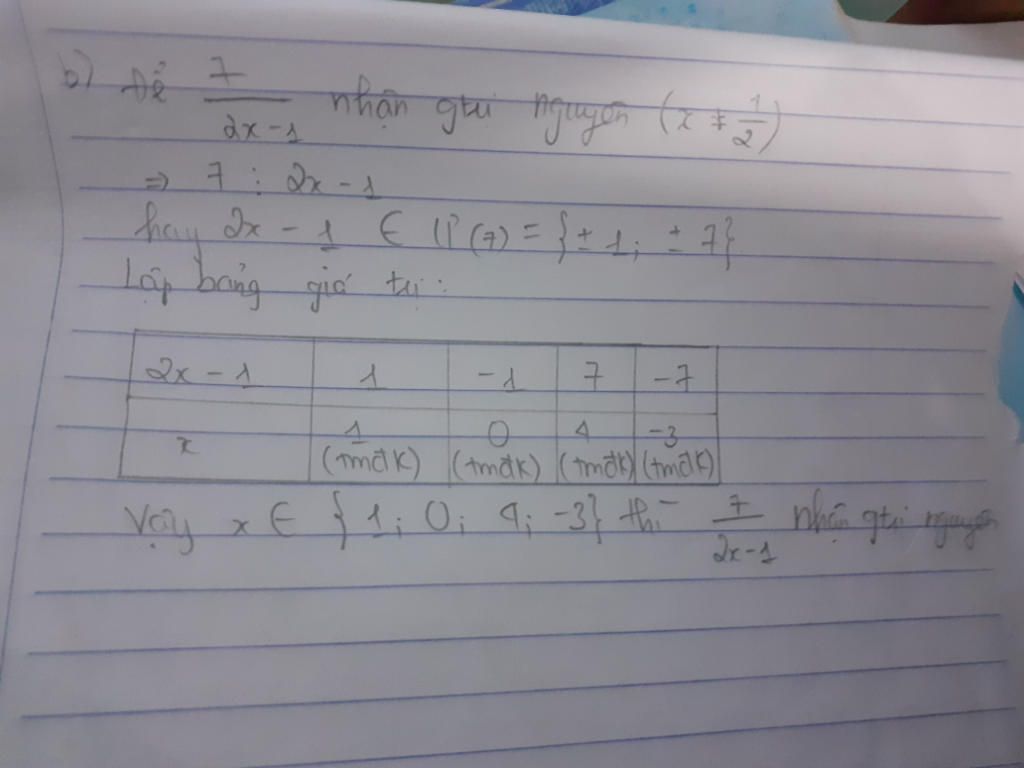 b) Để 7/(2x-1) nhận gtrị nguyên (x ≠ 1/2)
=> 7 ⋮ 2x - 1
hay 2x - 1 ∈ Ư(7) = {± 1; ± 7}
Lập bảng giá trị:
2x - 1 1 -1 7 -7
x 1 (tmđk) 0 (tmđk) 4 (tmđk) -3 (tmđk)
Vậy x ∈ {1; 0; 4; -3} thì 7/(2x-1) nhận gtrị nguyên